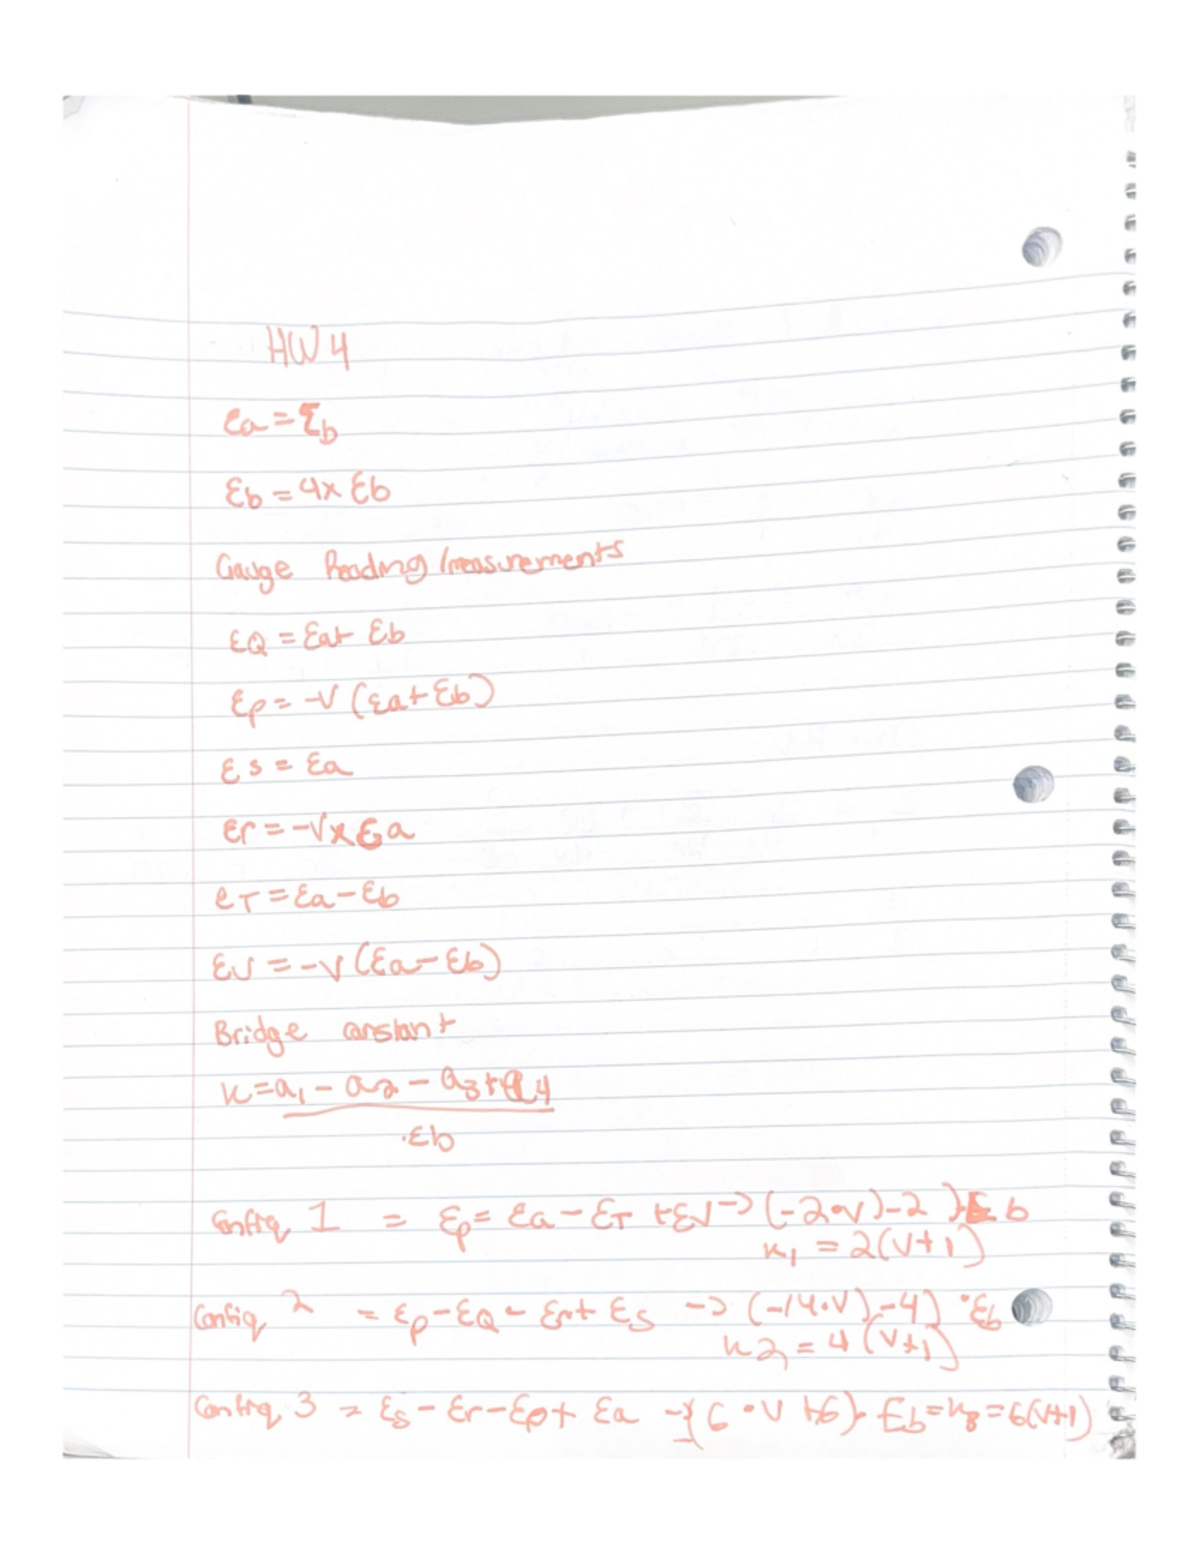 HW 4
εa = Σb
εb = 4x εb
Gauge Reading/measurements
εQ = εa+ εb
εp = -V (εa + εb)
εs = εa
εr = -V x εa
eT = εa - εb
εV = -V (εa - εb)
Bridge constant
K = a1 - a2 - a3 + a4
·εb
Config 1 = εp = εa - εT + εV -> (-2·V)-2 ) · εb
K1 = 2(V+1)
Config 2 = εp - εQ - εr + εs -> (-14·V)-4) · εb
K2, = 4 (V+1)
Config 3 = εs - εr - εp + εa -> (6·V +6) · εb = K3 = 6(V+1)